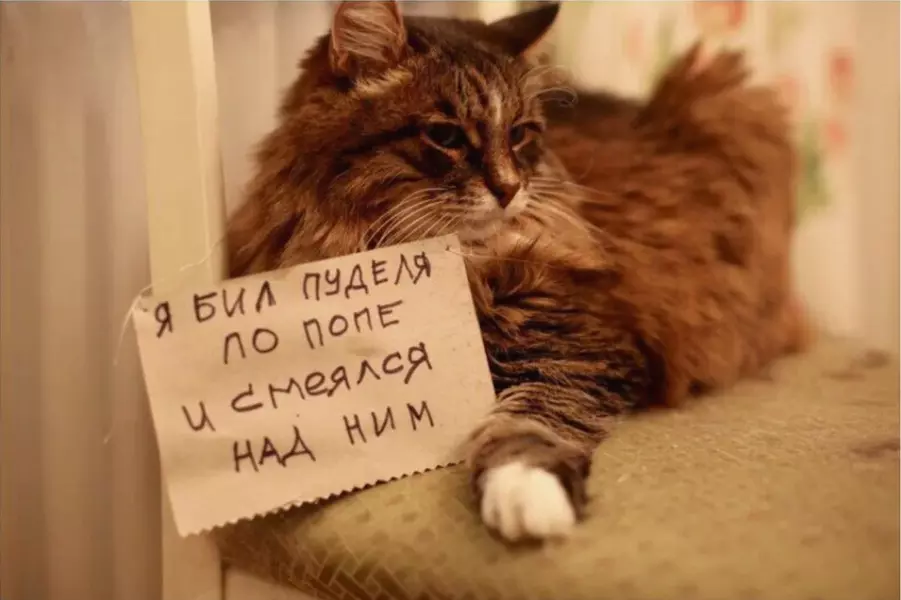 Я БИЛ ПУДЕЛЯ
ПО ПОПЕ
И СМЕЯЛСЯ
НАД НИМ